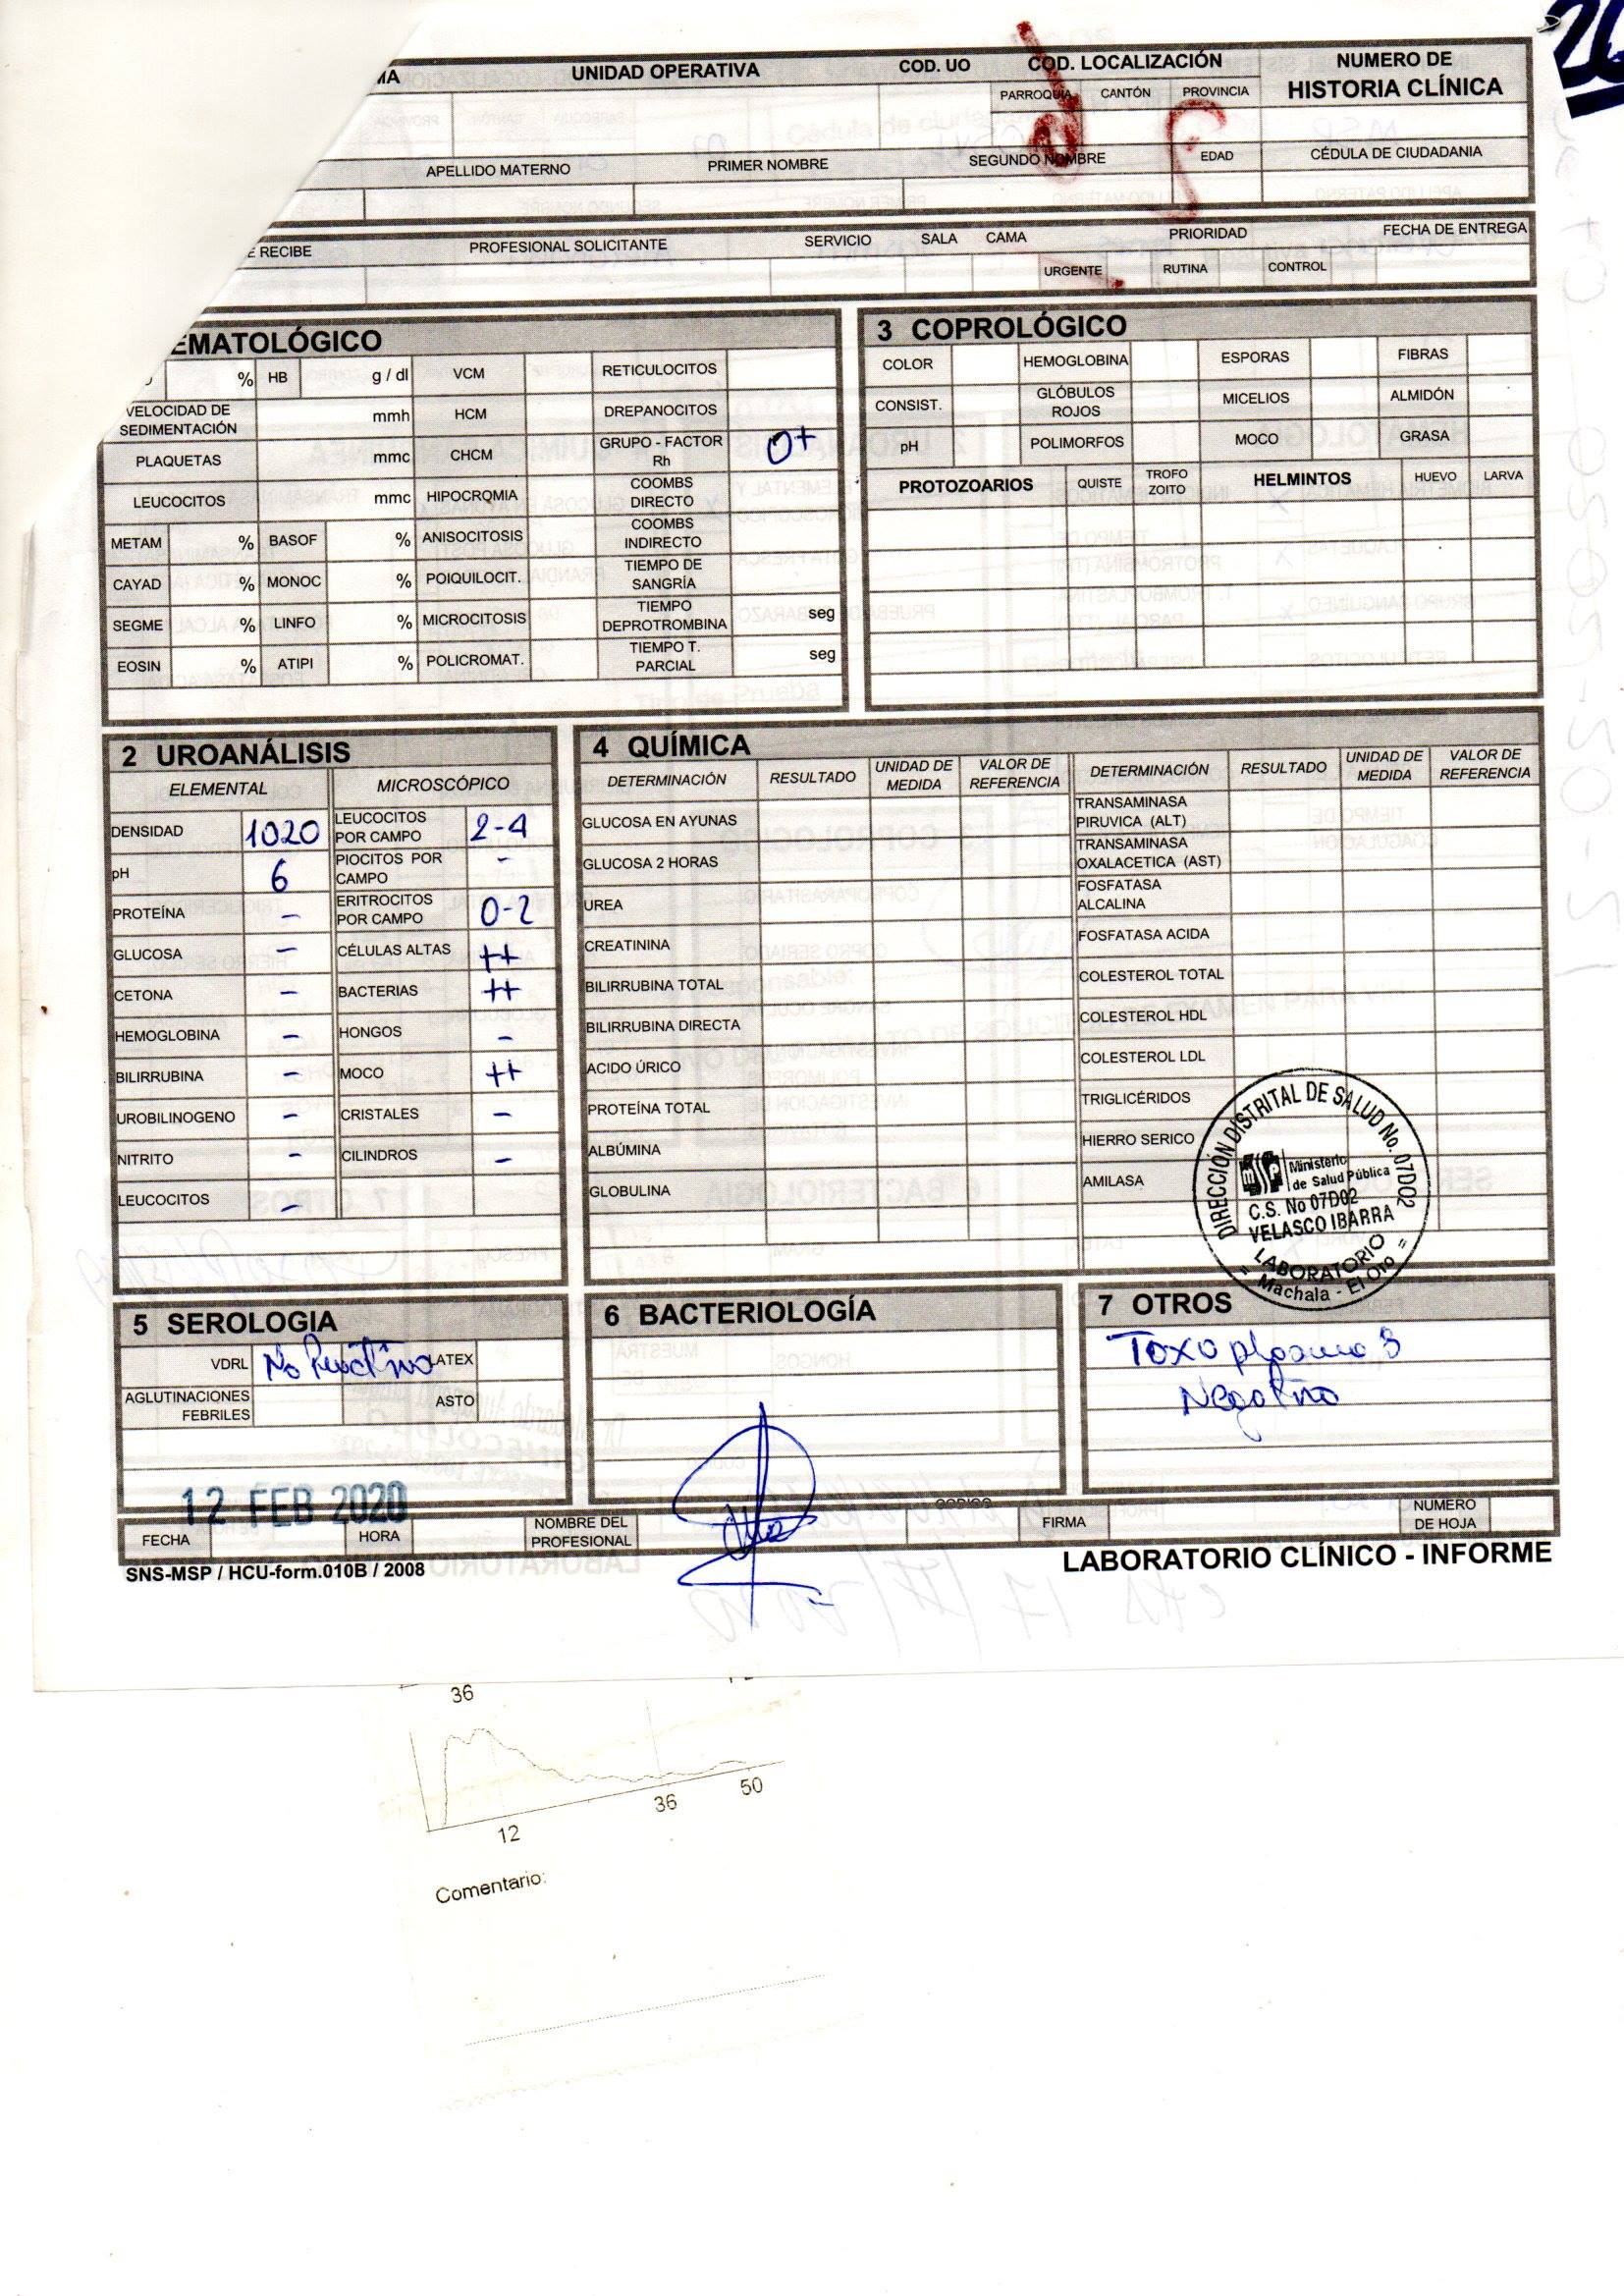 MA UNIDAD OPERATIVA COD. UO COD. LOCALIZACIÓN NUMERO DE
HISTORIA CLÍNICA
PARROQUIA CANTÓN PROVINCIA
APELLIDO MATERNO PRIMER NOMBRE SEGUNDO NOMBRE EDAD CÉDULA DE CIUDADANIA
E RECIBE PROFESIONAL SOLICITANTE SERVICIO SALA CAMA PRIORIDAD FECHA DE ENTREGA
URGENTE RUTINA CONTROL
EMATOLÓGICO
% HB g / dl VCM RETICULOCITOS
VELOCIDAD DE SEDIMENTACIÓN mmh HCM DREPANOCITOS
PLAQUETAS mmc CHCM GRUPO - FACTOR Rh O+
LEUCOCITOS mmc HIPOCROMIA COOMBS DIRECTO
METAM % BASOF % ANISOCITOSIS COOMBS INDIRECTO
CAYAD % MONOC % POIQUILOCIT. TIEMPO DE SANGRÍA
SEGME % LINFO % MICROCITOSIS TIEMPO DEPROTROMBINA seg
EOSIN % ATIPI % POLICROMAT. TIEMPO T. PARCIAL seg
3 COPROLÓGICO
COLOR HEMOGLOBINA ESPORAS FIBRAS
CONSIST. GLÓBULOS ROJOS MICELIOS ALMIDÓN
pH POLIMORFOS MOCO GRASA
PROTOZOARIOS QUISTE TROFO ZOITO HELMINTOS HUEVO LARVA
2 UROANÁLISIS
ELEMENTAL MICROSCÓPICO
DENSIDAD 1020 LEUCOCITOS POR CAMPO 2-4
pH 6 PIOCITOS POR CAMPO -
PROTEÍNA - ERITROCITOS POR CAMPO 0-2
GLUCOSA - CÉLULAS ALTAS ++
CETONA - BACTERIAS ++
HEMOGLOBINA - HONGOS -
BILIRRUBINA - MOCO ++
UROBILINOGENO - CRISTALES -
NITRITO - CILINDROS -
LEUCOCITOS -
4 QUÍMICA
DETERMINACIÓN RESULTADO UNIDAD DE MEDIDA VALOR DE REFERENCIA DETERMINACIÓN RESULTADO UNIDAD DE MEDIDA VALOR DE REFERENCIA
GLUCOSA EN AYUNAS TRANSAMINASA PIRUVICA (ALT)
GLUCOSA 2 HORAS TRANSAMINASA OXALACETICA (AST)
UREA FOSFATASA ALCALINA
CREATININA FOSFATASA ACIDA
BILIRRUBINA TOTAL COLESTEROL TOTAL
BILIRRUBINA DIRECTA COLESTEROL HDL
ACIDO ÚRICO COLESTEROL LDL
PROTEÍNA TOTAL TRIGLICÉRIDOS
ALBÚMINA HIERRO SERICO
GLOBULINA AMILASA
DIRECCIÓN DISTRITAL DE SALUD No. 07D02
Ministerio
de Salud Pública
C.S. No 07D02
VELASCO IBARRA
" LABORATORIO "
Machala - El Oro
5 SEROLOGIA
VDRL No Reactivo LATEX
AGLUTINACIONES FEBRILES ASTO
6 BACTERIOLOGÍA
7 OTROS
Toxoplasma
Negativo
12 FEB 2020
FECHA HORA NOMBRE DEL PROFESIONAL CODIGO FIRMA NUMERO DE HOJA
SNS-MSP / HCU-form.010B / 2008 LABORATORIO CLÍNICO - INFORME
36
12 36 50
Comentario: